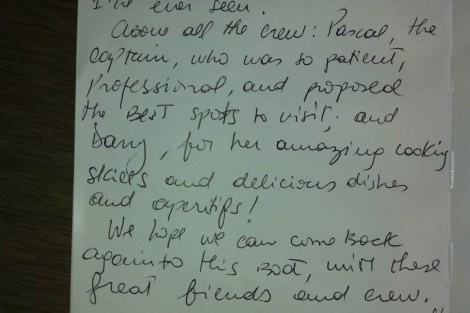 I've ever seen.
Above all the crew: Pascal, the
captain, who was so patient,
professional, and proposed
the BEST spots to visit; and
Dany, for her amazing cooking
skills and delicious dishes
and aperitifs!
We hope we can come back
again to this Boat, with these
great friends and crew.